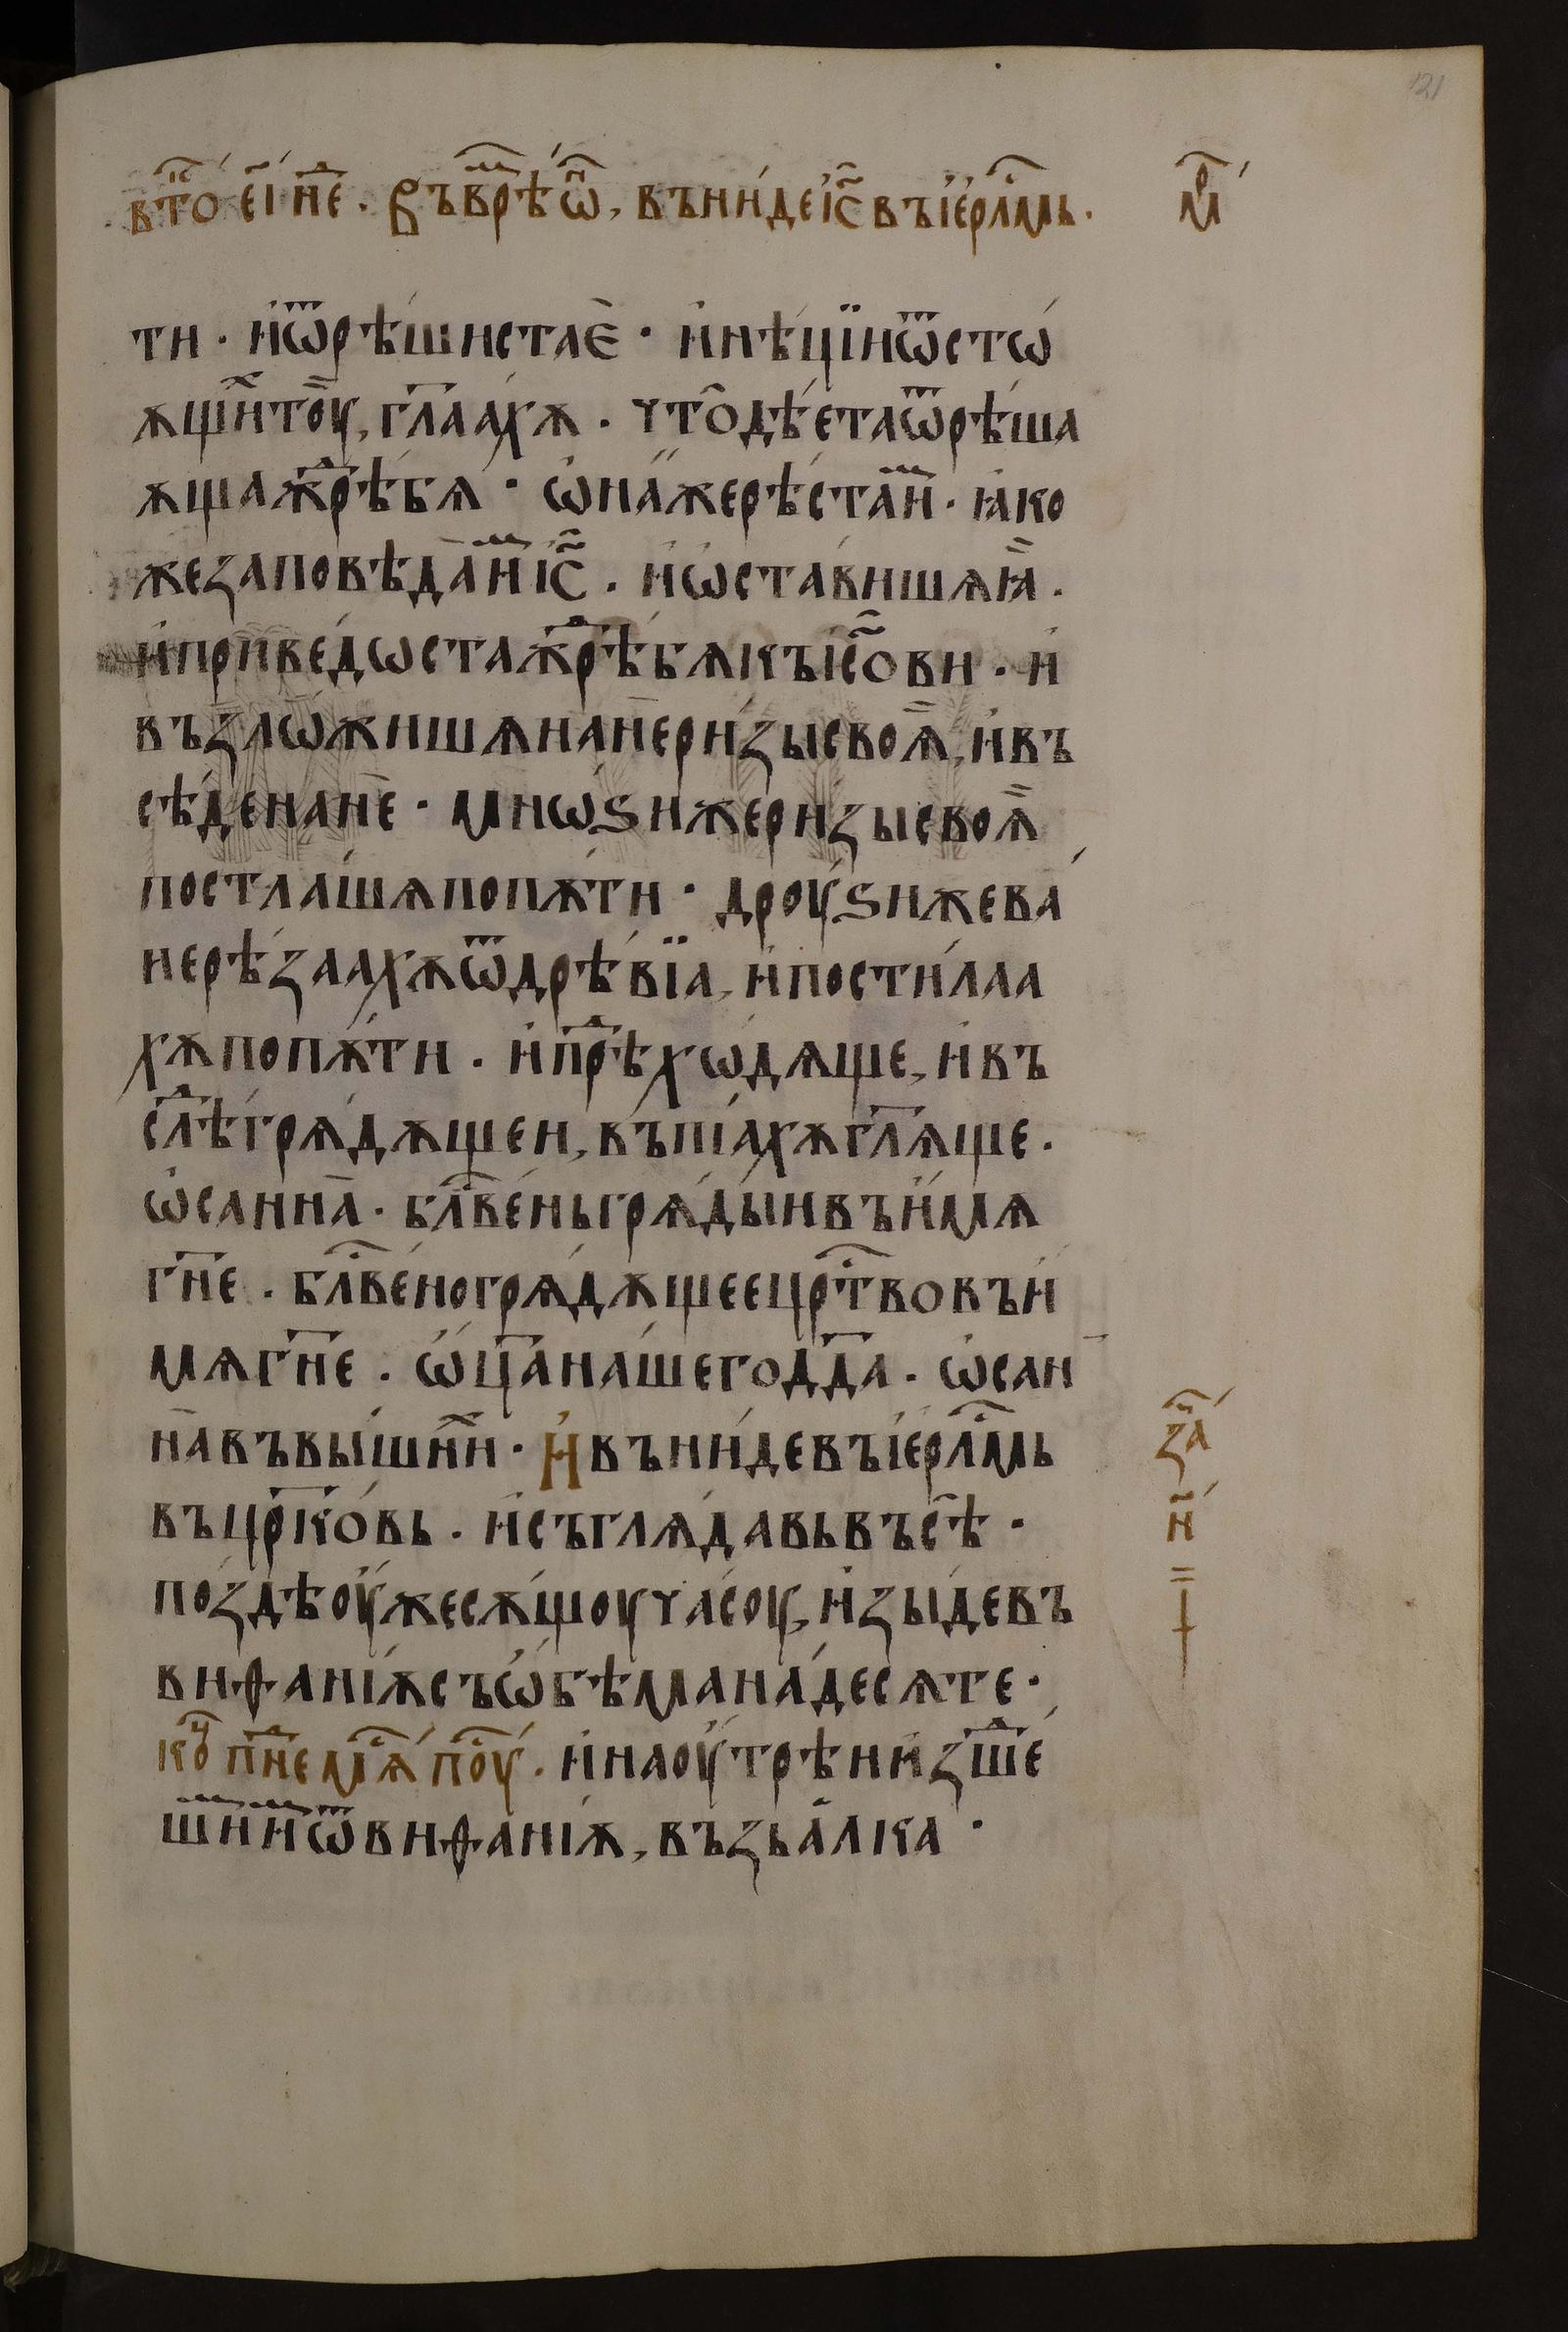 121
вт҃о є҃і н҃е · Въ врѣ ѡ҃, въни́де і҆с҃ въ і҆ерⷭ҇л҃мь ·
мⷬ҇
ти · и҆ ѿрѣ́шиста є҆̀ · и҆ нѣ́цїи ѿ стѡ́
ѫщи́⁠и҆ тоу̀, гл҃аахѫ · что̀ дѣ́ета ѿрѣ́ша
ѫща жрѣ́бѧ · ѡ҆на́ же рѣ́ста и҆м · ꙗ҆ко
же заповѣ́да и҆м і҆с҃ · и҆ ѡ҆ста́вишѧ ꙗ҆̀ ·
и҆ приведѡ́ста жрѣ́бѧ къ і҆с҃ови · и҆
възлѡжи́шѧ на не́ ри́зы своѧ̀, и҆ въ
сѣ́де на нѐ · мнѡ́ѕи же ри́зы своѧ̀
постла́шѧ по пѫ́ти · дроу́ѕи же ва́
не рѣ́заахѫ ѿ дрѣ́вїа, и҆ пости́лаа
хѫ по пѫ́ти · и҆ прѣⷣхѡ́дѧще, и҆ въ
слѣⷣ грѧ́дѫщеи, въпїа́хѫ гл҃ѧще ·
ѡ҆са́нна̀ · блⷭ҇ве́нь грѧды́и въ и҆́мѧ
гн҃е · блⷭ҇ве́но грѧ́дѫщее црⷭ҇тво въ и҆́
мѧ гн҃е · ѡ҆́ц҃а на́шего дд҃а · ѡ҆са́н
на̀ въ вы́шни҆и · И҆ въни́де въ і҆ерⷭ҇л҃мь
въ цр҃ко́вь · и҆ съглѧ́давь въсѣ̀ ·
по́здѣ оу҆же сѫ́щоу часоу́, и҆зы́де въ
виѳанїѫ съ ѡ҆бѣ́ма на́десѧте ·
за҃
н҃
коⷰ҇ пнⷣе мⷭ҇ѧ поⷭ҇у · и҆ на оу҆трѣи и҆зше́
шіим ѿ виѳанїѫ, възъа́лка ·